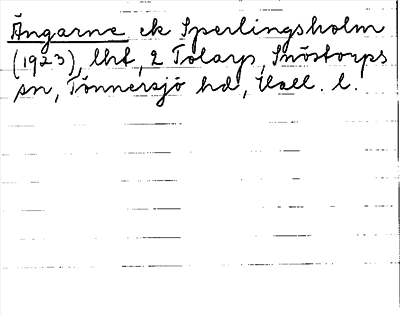 Ängarne ek Sperlingsholm
(1923), lht, 2 Tolarp, Snöstorps
sn, Tönnersjö hd, Hall. l.